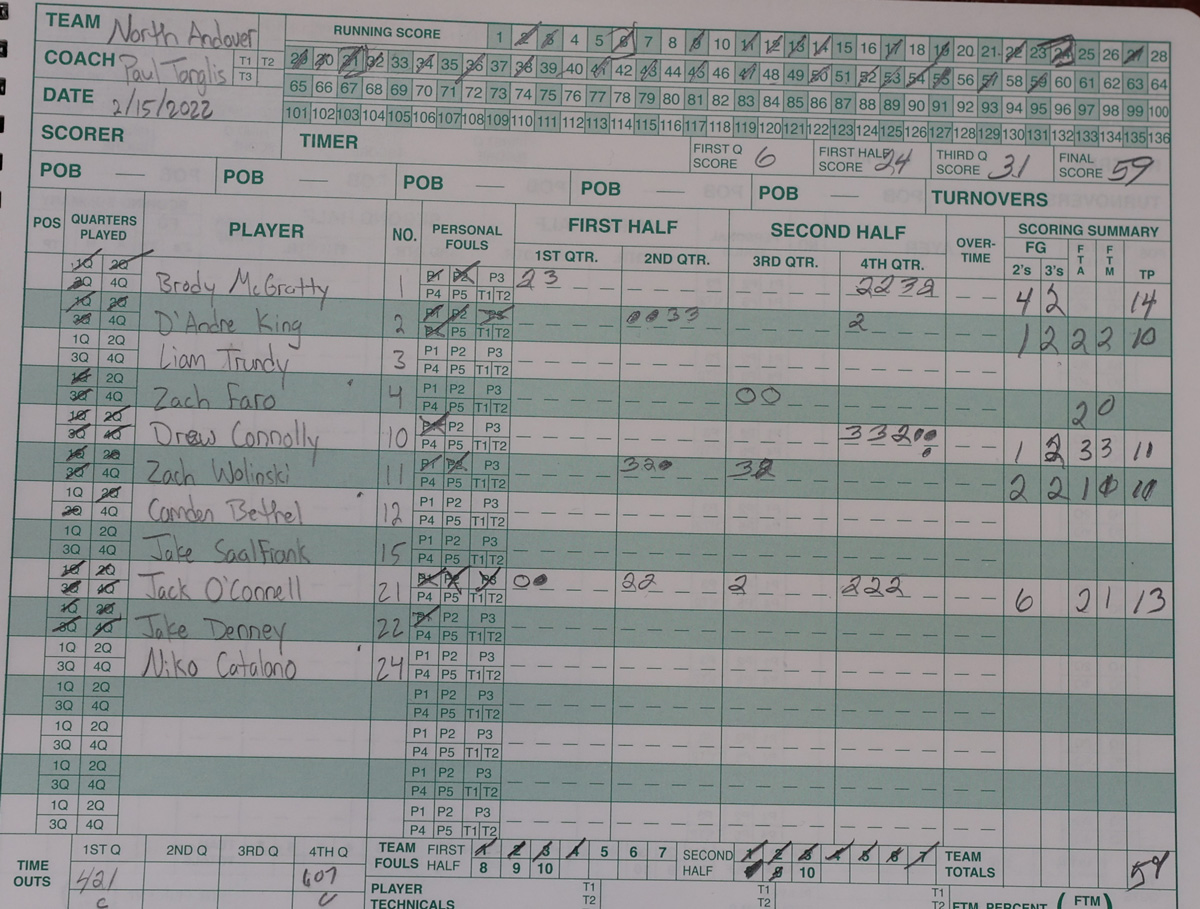 TEAM North Andover
COACH Paul Tanglis T1 T2 T3
DATE 2/15/2022
SCORER
TIMER
RUNNING SCORE
1 2 3 4 5 6 7 8 9 10 11 12 13 14 15 16 17 18 19 20 21 22 23 24 25 26 27 28
29 30 31 32 33 34 35 36 37 38 39 40 41 42 43 44 45 46 47 48 49 50 51 52 53 54 55 56 57 58 59 60 61 62 63 64
65 66 67 68 69 70 71 72 73 74 75 76 77 78 79 80 81 82 83 84 85 86 87 88 89 90 91 92 93 94 95 96 97 98 99 100
101 102 103 104 105 106 107 108 109 110 111 112 113 114 115 116 117 118 119 120 121 122 123 124 125 126 127 128 129 130 131 132 133 134 135 136
FIRST Q SCORE 6 FIRST HALF SCORE 24 THIRD Q SCORE 31 FINAL SCORE 59
POB — POB — POB — POB — POB — TURNOVERS
POS QUARTERS PLAYED PLAYER NO. PERSONAL FOULS FIRST HALF SECOND HALF OVER-TIME SCORING SUMMARY
1ST QTR. 2ND QTR. 3RD QTR. 4TH QTR. FG 2's 3's FTA FTM TP
1Q 2Q 3Q 4Q Brody McGratty 1 P1 P2 P3 P4 P5 T1 T2 2 3 2 2 3 2 4 2 14
1Q 2Q 3Q 4Q D'Andre King 2 P1 P2 P3 P4 P5 T1 T2 0 0 3 3 2 1 2 2 2 10
1Q 2Q 3Q 4Q Liam Trundy 3 P1 P2 P3 P4 P5 T1 T2
1Q 2Q 3Q 4Q Zach Faro 4 P1 P2 P3 P4 P5 T1 T2 0 0 2 0
1Q 2Q 3Q 4Q Drew Connolly 10 P1 P2 P3 P4 P5 T1 T2 3 3 2 0 0 1 2 3 3 11
1Q 2Q 3Q 4Q Zach Wolinski 11 P1 P2 P3 P4 P5 T1 T2 3 2 0 3 2 2 2 1 1 11
1Q 2Q 3Q 4Q Camden Bethel 12 P1 P2 P3 P4 P5 T1 T2
1Q 2Q 3Q 4Q Jake Saalfrank 15 P1 P2 P3 P4 P5 T1 T2
1Q 2Q 3Q 4Q Jack O'Connell 21 P1 P2 P3 P4 P5 T1 T2 0 0 2 2 2 2 2 2 6 2 1 13
1Q 2Q 3Q 4Q Jake Denney 22 P1 P2 P3 P4 P5 T1 T2
1Q 2Q 3Q 4Q Niko Catalano 24 P1 P2 P3 P4 P5 T1 T2
1Q 2Q 3Q 4Q P1 P2 P3 P4 P5 T1 T2
1Q 2Q 3Q 4Q P1 P2 P3 P4 P5 T1 T2
1Q 2Q 3Q 4Q P1 P2 P3 P4 P5 T1 T2
1Q 2Q 3Q 4Q P1 P2 P3 P4 P5 T1 T2
TIME OUTS 1ST Q 2ND Q 3RD Q 4TH Q
4/21 c 607 c
TEAM FOULS FIRST HALF 1 2 3 4 5 6 7 8 9 10 SECOND HALF 1 2 3 4 5 6 7 8 9 10 TEAM TOTALS 59
PLAYER TECHNICALS T1 T2 T1 T2 T1 T2 FTM PERCENT (FTM)